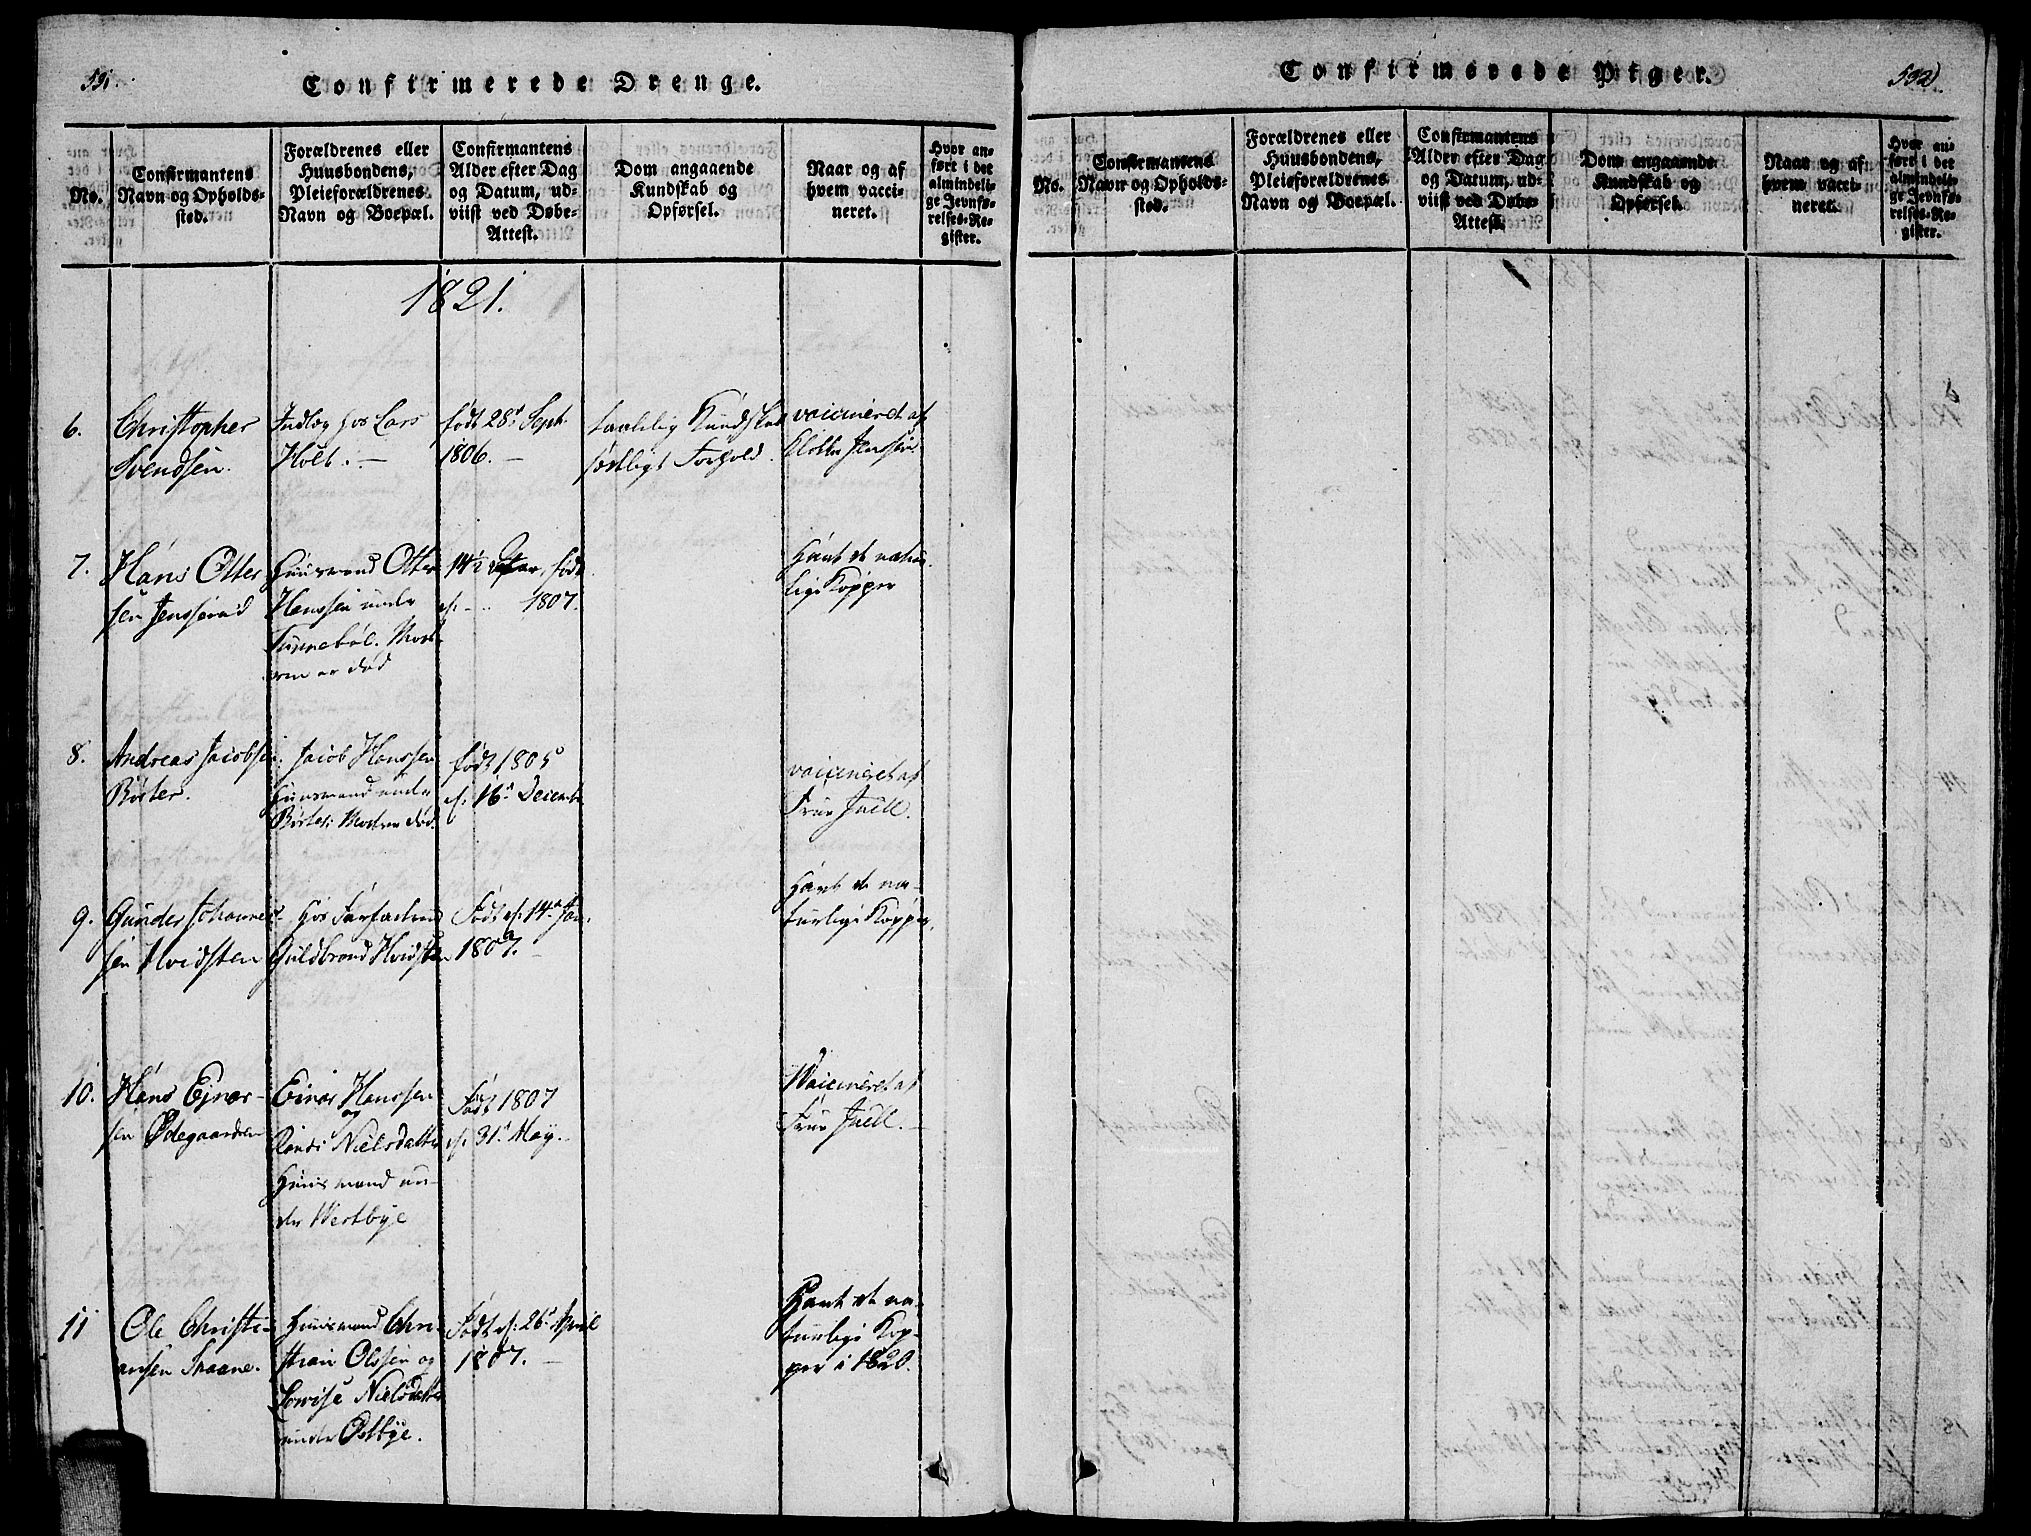 591.
Confirmerede Drenge.
No.
Confirmantens
Navn og Opholds-
sted.
Forældrenes eller
Huusbondens,
Pleieforældrenes
Navn og Boepæl.
Confirmantens
Alder efter Dag
og Datum, ud-
viist ved Døbe-
Attest.
Dom angaaende
Kundskab og
Opførsel.
Naar og af
hvem vacci-
neret.
Hvor an-
ført i det
almindeli-
ge Jevnfø-
relses-Re-
gister.
1821.
6.
Christopher
Svendsen.
Indlæg hos Lars
Holt.
født 28de Sept.
1806.
taalelig Kundskab
sædeligt Forhold.
vaccineret af
Klokker Jenssen
7.
Hans Otter
sen Jensserud
Huusmand Otter
Hanssen under
Tunnebøl. Mode-
ren er død
14½ Aar, født
d. - 1807.
Havt de natur-
lige Kopper
8.
Andreas Jacobsen
Børter.
Jacob Hanssen
Huusmand under
Børter. Modren død.
født 1805
d. 16de Decemb.
vaccineret af
Frue Juell.
9.
Gunder Johannes-
sen Hvidsten
hos Farfadren
Guldbrand Hvidsten
Født d. 14de Jan.
1807.
Havt de na-
turlige Kopper.
10.
Hans Ejnar-
sen Ødegaarden
Einar Hanssen
og
Randi Nielsdatter
Huusmand un-
der Westbye
Født 1807
d. 31te May.
Vaccineret af
Frue Juell.
11
Ole Christi-
ansen Skaane.
Huusmand Chri-
stian Olssen og
Lovise Nielsdatter
under Østbye.
Født d. 26de April
1807.
Havt de na-
turlige Kop-
per i 1820.
Confirmerede Piger.
592
No.
Confirmantens
Navn og Opholds-
sted.
Forældrenes eller
Huusbondens,
Pleieforældrenes
Navn og Boepæl.
Confirmantens
Alder efter Dag
og Datum, ud-
viist ved Døbe-
Attest.
Dom angaaende
Kundskab og
Opførsel.
Naar og af
hvem vacci-
neret.
Hvor an-
ført i det
almindeli-
ge Jevnfø-
relses-Re-
gister.